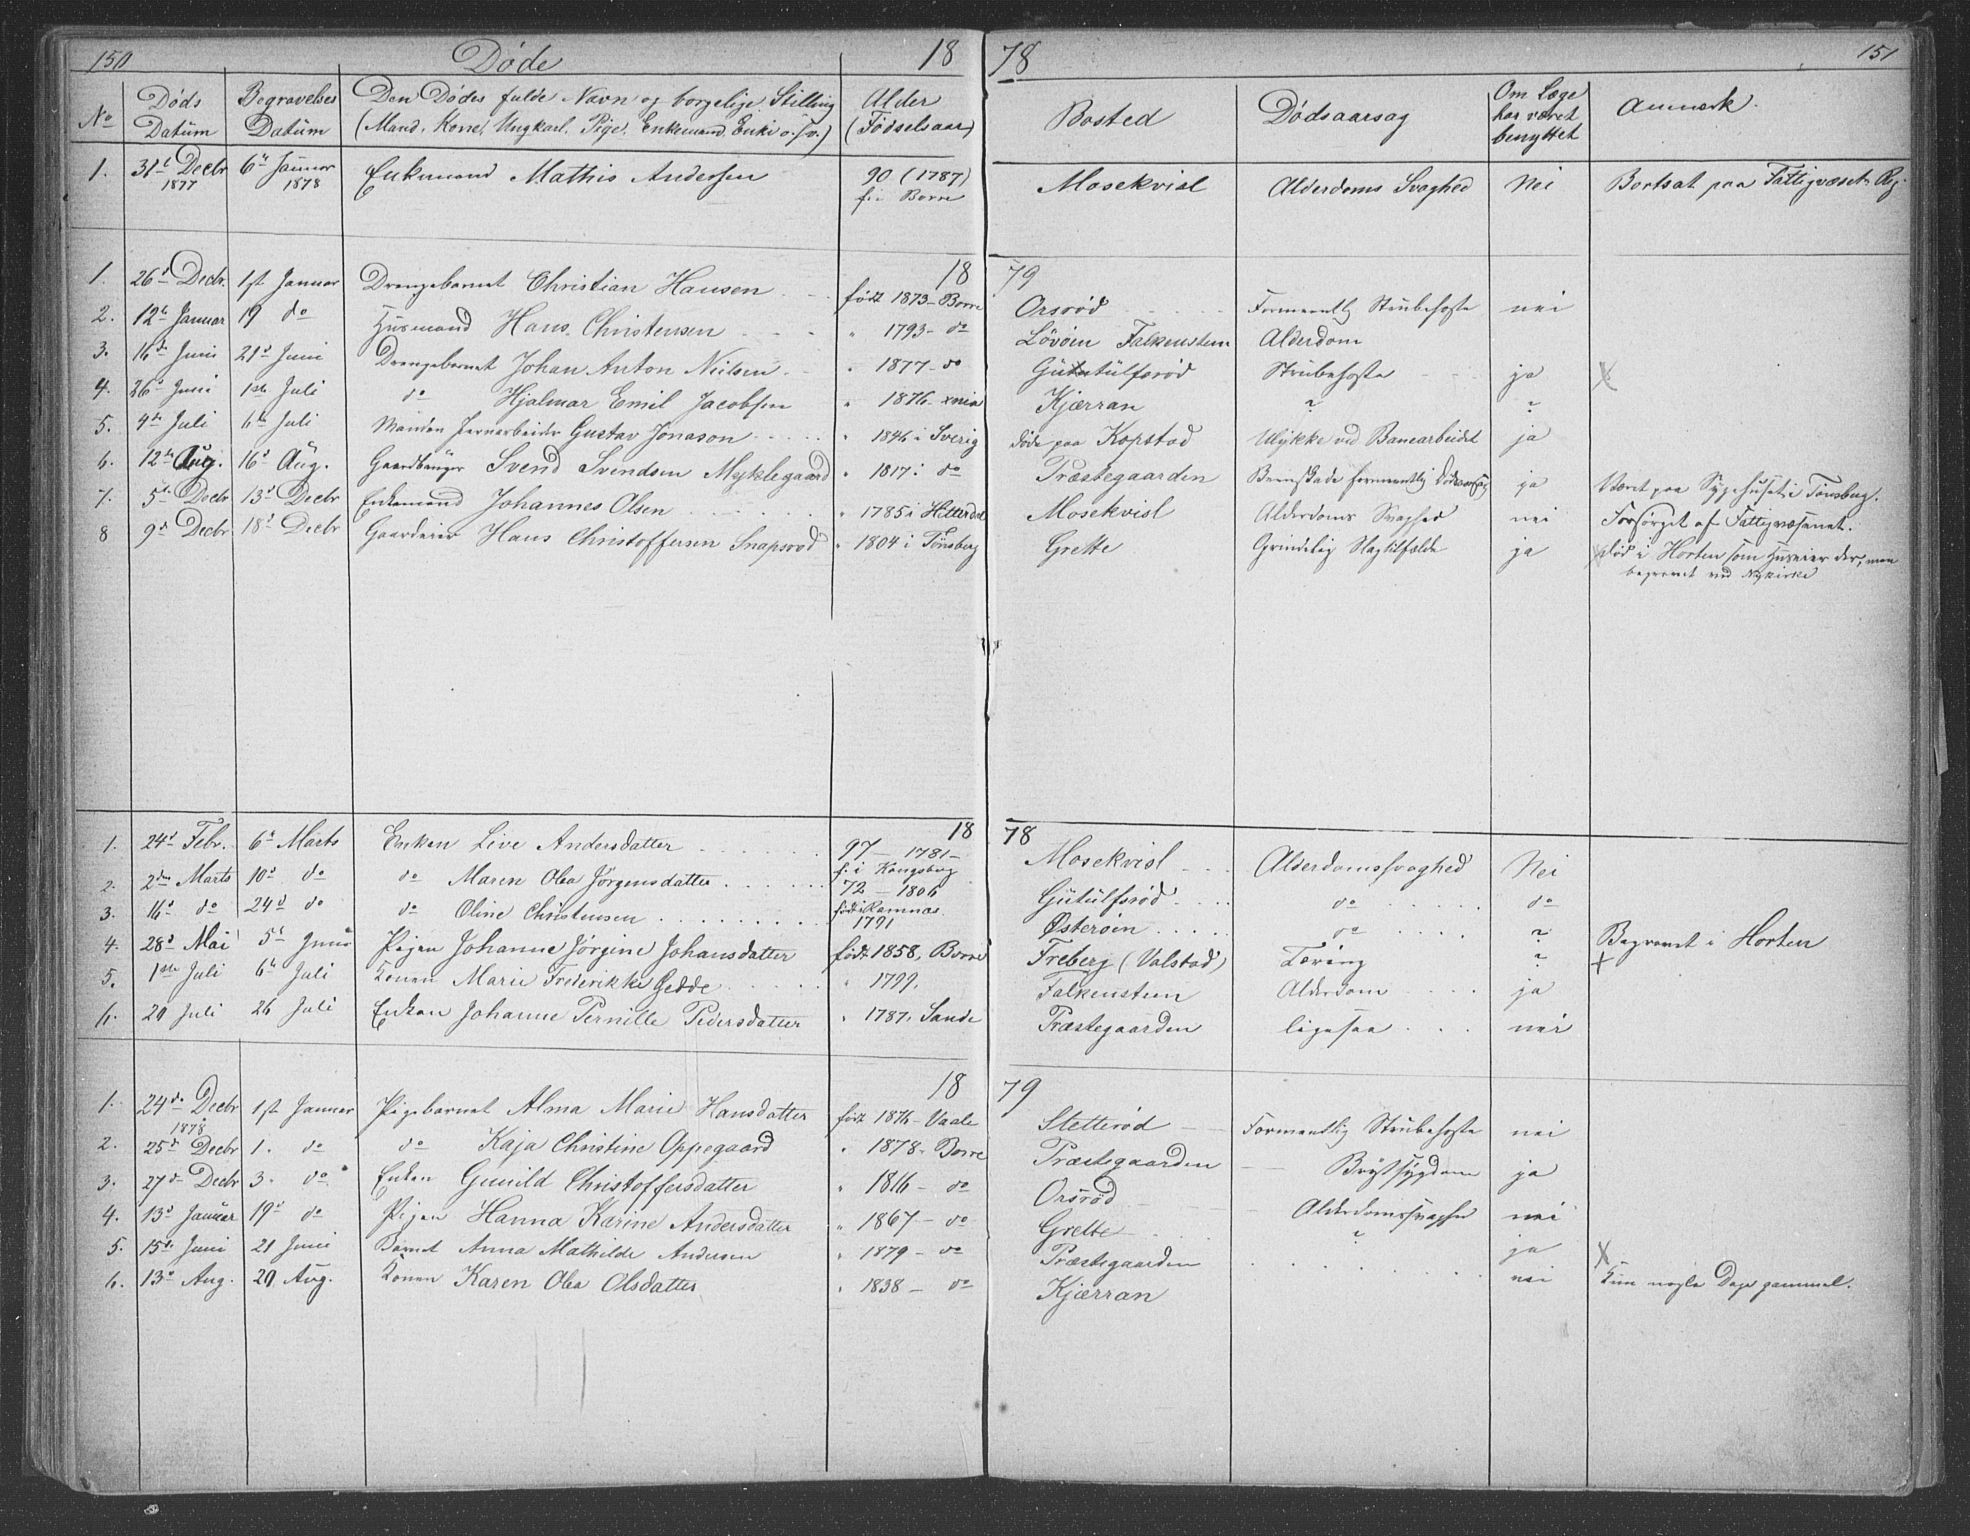 150 Døde 18 78 151
No Døds Datum Begravelses Datum Den Dødes fulde Navn og borgelige Stilling (Mand, Kone, Ungkarl, Pige, Enkemand, Enke o.s.v.) Alder (Fødselsaar) Bosted Dødsaarsag Om Læge har været benyttet Anmærk.
1. 31t Decbr 1877 6t Januar 1878 Enkemand Mathis Andersen 90 (1787) f. i Borre Mosekvisl Alderdoms Svaghed Nei Bortsat paa Fattigvæsets Rg.
18 79
1. 26d Decbr. 1st Januar Drengebarnet Christian Hansen født 1873 - Borre Orsrød Formeentlig Strubehoste nei
2. 12t Januar 19 do Husmand Hans Christensen " 1793 - do Løvøen Falkensteen Alderdom
3. 16d Juni 21d Juni Drengebarnet Johan Anton Nielsen " 1877 - do Gutulfsrød Strubehoste ja
4. 26d Juni 1ste Juli do Hjalmar Emil Jacobsen " 1876 - xnia Kjærran ? ?
5. 4de Juli 6te Juli Manden Jernarbeider Gustav Jonason " 1846 i Sverig døde paa Kopstad Ulykke ved Banearbeidet ja
6. 12te Aug. 16d Aug. Gaardbruger Svend Svendsen Myklegaard " 1817 i do Præstegaarden Beenskade formeentlig Dødsaarsag ja Været paa Sygehuset i Tønsberg.
7. 5te Decbr 13d Decbr Enkemand Johannes Olsen " 1785 i Hitterdal Mosekvisl Alderdoms Svaghed nei Forsørget af Fattigvæsenet.
8 9d Decbr. 18d Decbr Gaardeier Hans Christoffersen Snapsrød " 1804 i Tønsberg Grette Grindelig Slagtilfælde ja død i Horten som Huseier der, men
begravet ved Nykirke
18 78
1. 24d Febr. 6t Marts Enken Live Andersdatter 97 - 1781 - f. i Kongsberg Mosekvisl Alderdomssvaghed Nei
2. 2den Marts 10d do do Maren Olea Jørgensdatter 72 - 1806 født i Ramnæs Gutulfsrød do do
3. 16d do 24d do do Oline Christensen 1791 Østerøen do ?
4. 28d Mai 5t Juni Pigen Johanne Jørgine Johansdatter født 1858, Borre Freberg (Valstad) Tæring ? Begravet i Horten
5. 1ste Juli 6te Juli Konen Marie Frederikke Gedde " 1799. Falkensteen Alderdom ja
6. 20 Juli 26 Juli Enken Johanne Pernille Pedersdatter " 1787, Sande Præstegaarden ligesaa nei
18 79
1. 24de Decbr 1878 1st Januar Pigebarnet Alma Marie Hansdatter født 1876 - Vaale Stetterød Formentlig Strubehoste nei
2. 25d Decbr 1. do do Kaja Christine Oppegaard " 1878 - Borre Præstegaarden Brystsygdom ja
3. 27de Decbr 3. do Enken Gunild Christoffersdatter " 1816 - do Orsrød Alderdomssvaghed nei
4. 13d Januar 19d do Pigen Hanna Karine Andersdatter " 1867 - do Grette ? ja
5. 15de Juni 21 Juni Barnet Anna Mathilde Andersen " 1879 - do Præstegaarden nei Kun nogle Dage gammel.
6. 13d Aug. 20 Aug. Konen Karen Olea Olsdatter " 1838 - do Kjærran